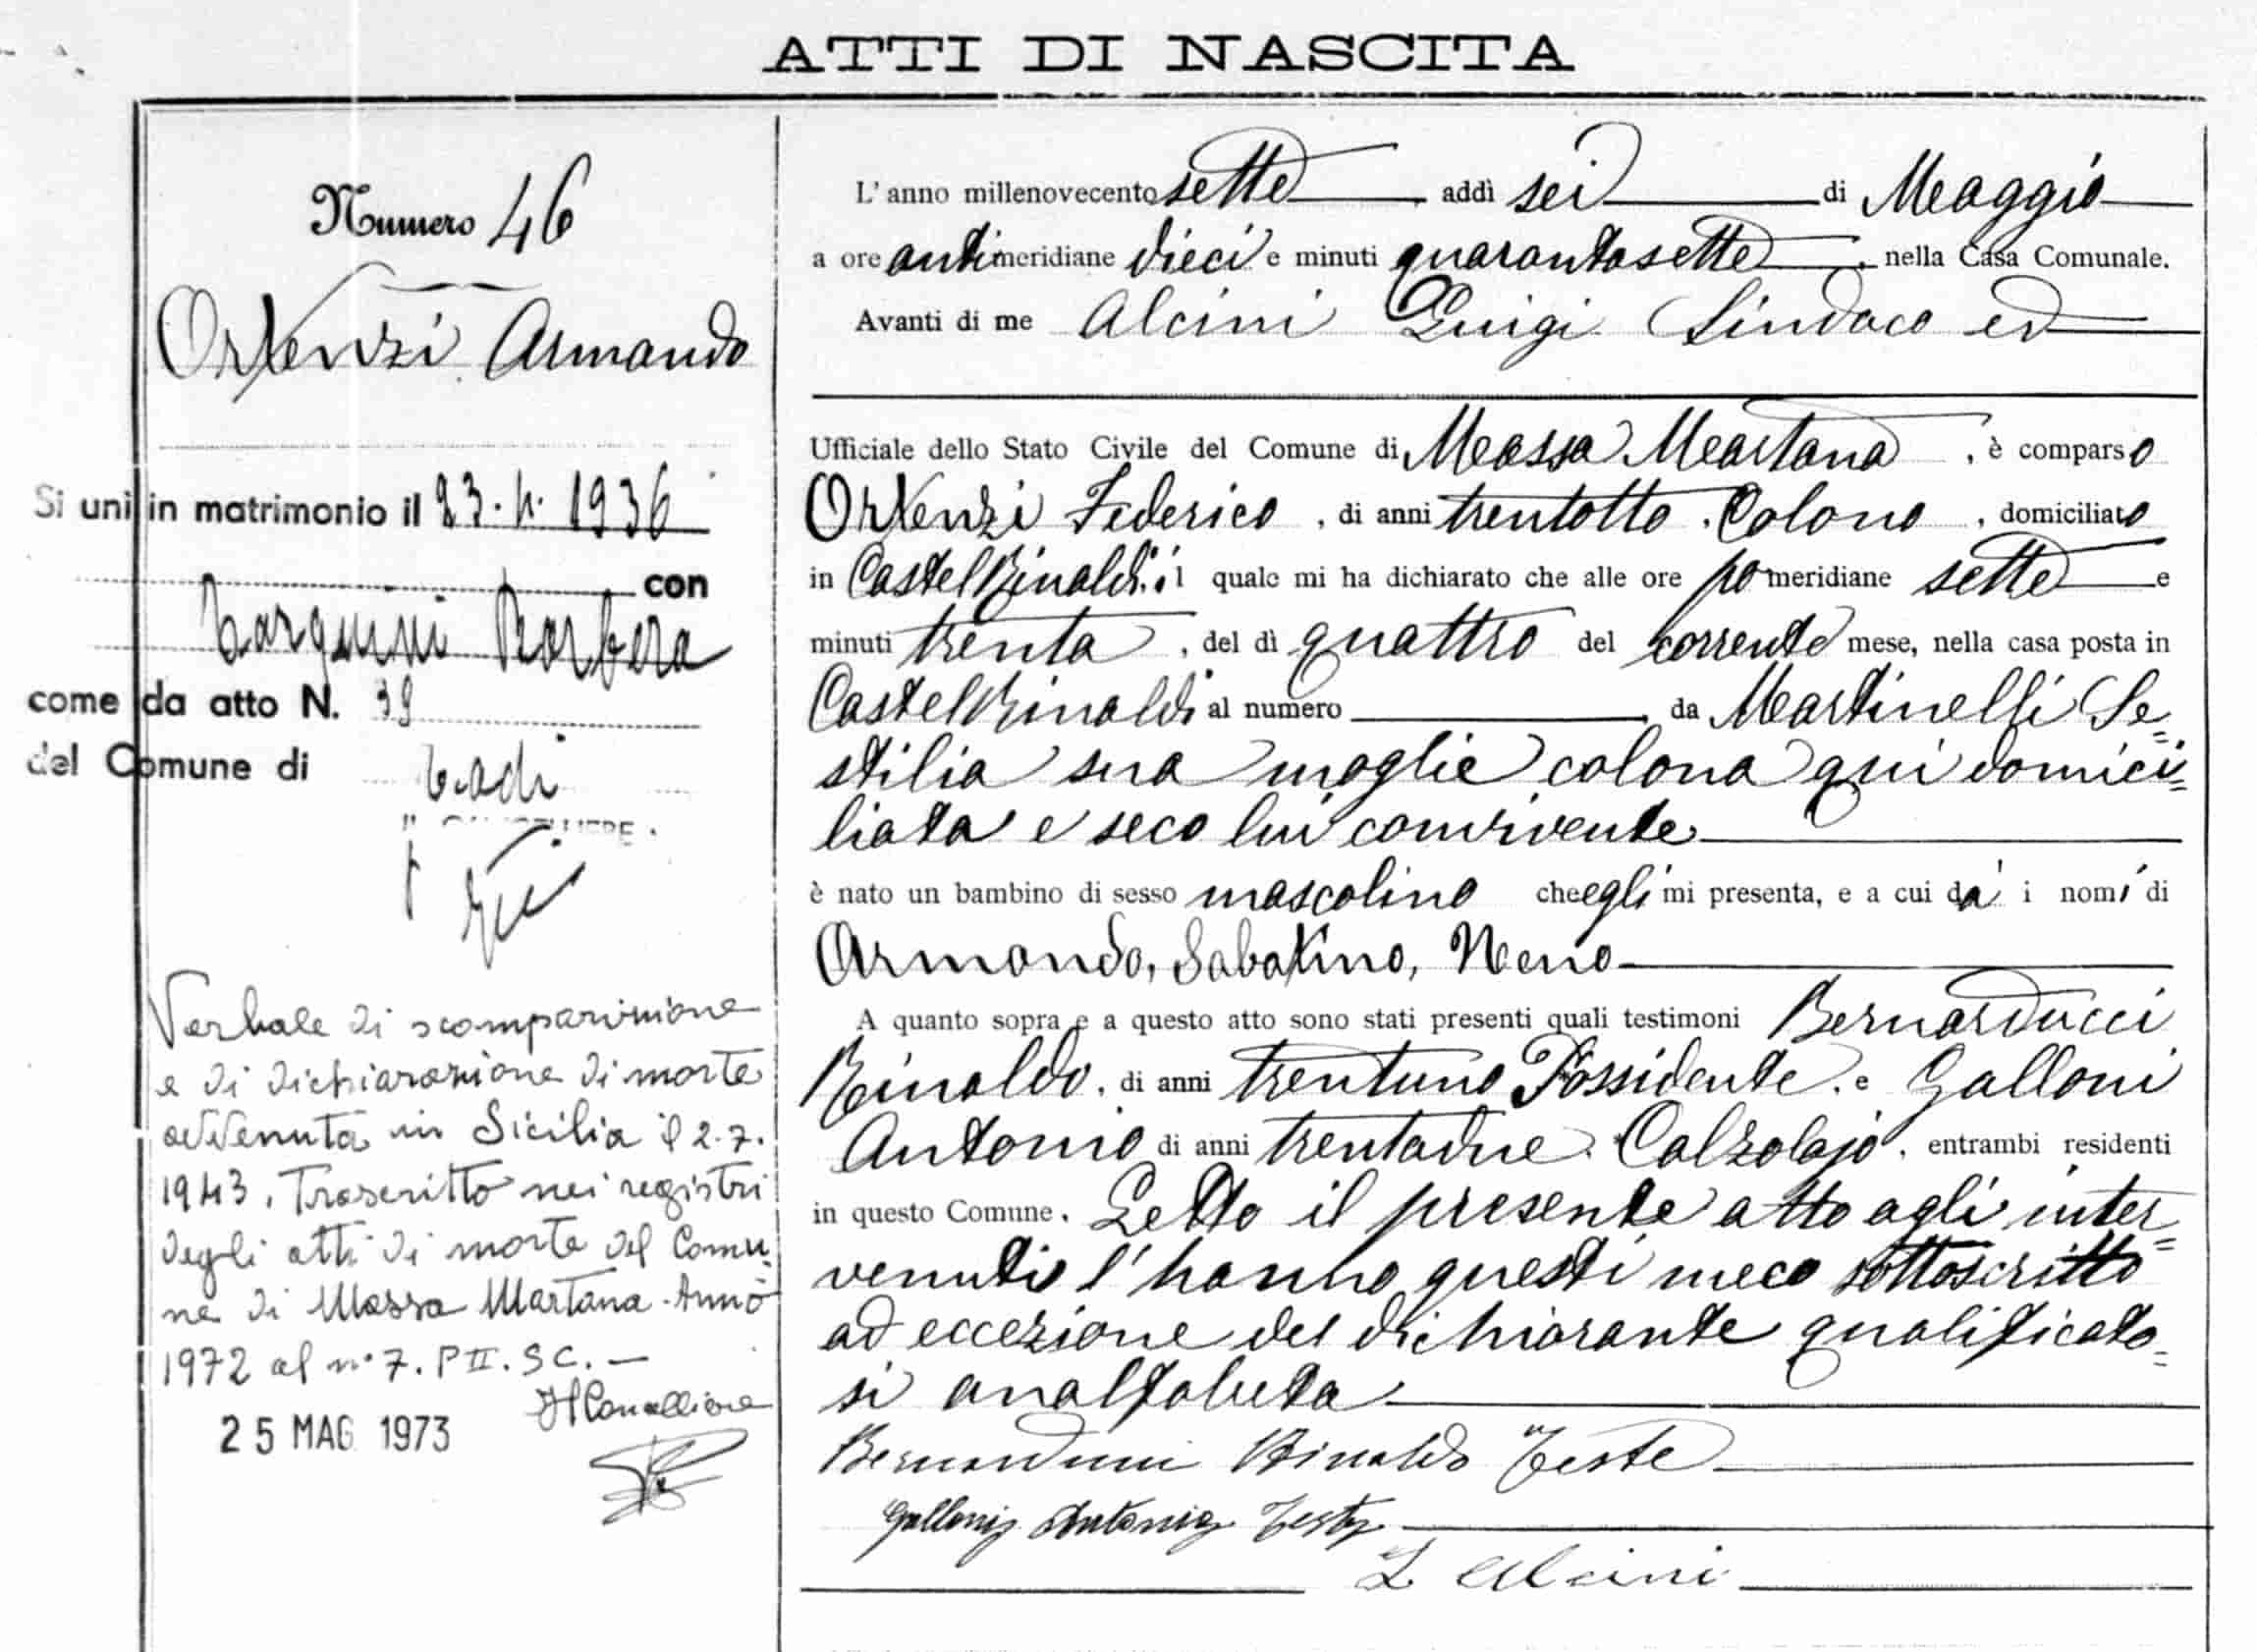 ATTI DI NASCITA
Numero 46
Ortenzi Armando
Si unì in matrimonio il 23.4.1936
con
Tarquini Barbera
come da atto N. 39
del Comune di Todi
Verbale di scomparizione
e di dichiarazione di morte
avvenuta in Sicilia il 2.7.
1943. Trascritto nei registri
degli atti di morte del Comu
ne di Massa Martana. Anno
1972 al n° 7. P II. S C. —
Il Cancelliere
25 MAG 1973
L'anno millenovecento sette, addì sei di Maggio
a ore antimeridiane dieci e minuti quarantasette, nella Casa Comunale.
Avanti di me Alcini Luigi Sindaco ed
Ufficiale dello Stato Civile del Comune di Massa Martana, è comparso
Ortenzi Federico, di anni trentotto, Colono, domiciliato
in Castel Rinaldi, il quale mi ha dichiarato che alle ore pomeridiane sette e
minuti trenta, del dì quattro del corrente mese, nella casa posta in
Castel Rinaldi al numero , da Martinelli Se=
stilia sua moglie colona qui domici=
liata e seco lui convivente
è nato un bambino di sesso mascolino che egli mi presenta, e a cui dà i nomi di
Armando, Sabatino, Neno
A quanto sopra e a questo atto sono stati presenti quali testimoni Bernarducci
Rinaldo, di anni trentuno Possidente, e Galloni
Antonio di anni trentadue, Calzolajo, entrambi residenti
in questo Comune. Letto il presente atto agli inter=
venuti l'hanno questi meco sottoscritto
ad eccezione del dichiarante qualificato=
si analfabeta
Rinaldo Teste
Galloni Antonio Teste
L Alcini